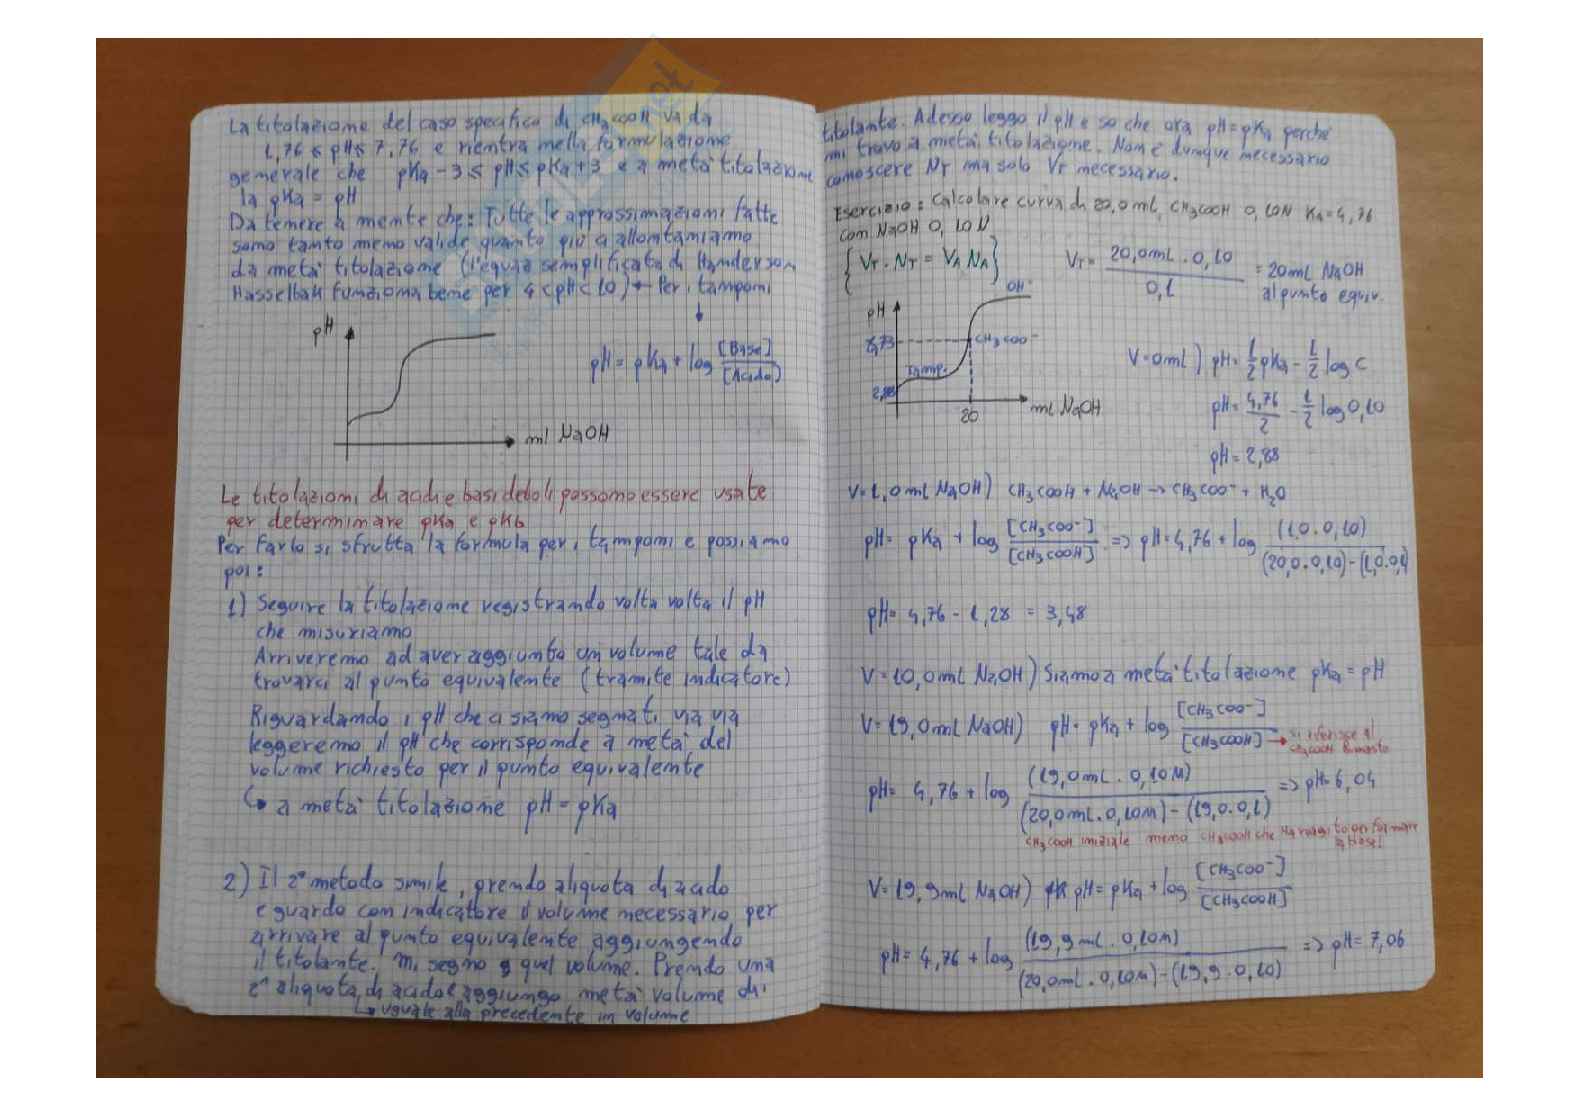 La titolazione del caso specifico di CH3COOH va da
1,76 ≤ pH ≤ 7,76 e rientra nella formulazione
generale che pKa-3 ≤ pH ≤ pKa+3 e a metà titolazione
la pKa = pH
Da tenere a mente che: Tutte le approssimazioni fatte
sono tanto meno valide quanto più ci allontaniamo
da metà titolazione (l'equaz semplificata di Henderson
Hasselbah funziona bene per 4<pH<10) ← Per i tamponi
pH
pH = pKa + log [Base]/[Acido]
ml NaOH
Le titolazioni di acidi e basi deboli possono essere usate
per determinare pKa e pKb
Per farlo si sfrutta la formula per i tamponi e possiamo
poi:
1) Seguire la titolazione registrando volta volta il pH
che misuriamo
Arriveremo ad aver aggiunto un volume tale da
trovarci al punto equivalente (tramite indicatore)
Riguardando i pH che ci siamo segnati via via
leggeremo il pH che corrisponde a metà del
volume richiesto per il punto equivalente
↳ a metà titolazione pH = pKa
2) Il 2° metodo simile, prendo aliquota di acido
e guardo con indicatore il volume necessario per
arrivare al punto equivalente aggiungendo
il titolante. mi segno quel volume. Prendo una
2ª aliquota di acido e aggiungo metà volume di
↳ uguale alla precedente in volume
titolante. Adesso leggo il pH e so che ora pH = pKa perché
mi trovo a metà titolazione. Non è dunque necessario
conoscere NT ma solo VT necessario.
Esercizio: Calcolare curva di 20,0 mL CH3COOH 0,10N Ka=4,76
con NaOH 0,10 N
{VT · NT = VA NA}
VT = 20,0mL · 0,10 / 0,1 = 20 mL NaOH
al punto equiv.
pH
OH-
8,73
CH3COO-
Tamp.
2,88
20
ml NaOH
V=0ml) pH = 1/2 pKa - 1/2 log C
pH = 4,76/2 - 1/2 log 0,10
pH = 2,88
V=1,0 ml NaOH) CH3COOH + NaOH → CH3COO- + H2O
pH = pKa + log [CH3COO-]/[CH3COOH] => pH = 4,76 + log (1,0 · 0,10)/(20,0 · 0,10)-(1,0·0,1)
pH = 4,76 - 1,28 = 3,48
V=10,0 ml NaOH) Siamo a metà titolazione pKa = pH
V=19,0 ml NaOH) pH = pKa + log [CH3COO-]/[CH3COOH] → si riferisce al
CH3COOH rimasto
pH = 4,76 + log (19,0 mL · 0,10M)/(20,0 mL · 0,10M)-(19,0 · 0,1) => pH = 6,04
CH3COOH iniziale meno CH3COOH che ha reagito per formare
la base!
V=19,9ml NaOH) pH = pKa + log [CH3COO-]/[CH3COOH]
pH = 4,76 + log (19,9 mL · 0,10M)/(20,0 mL · 0,10M)-(19,9 · 0,10) => pH = 7,06